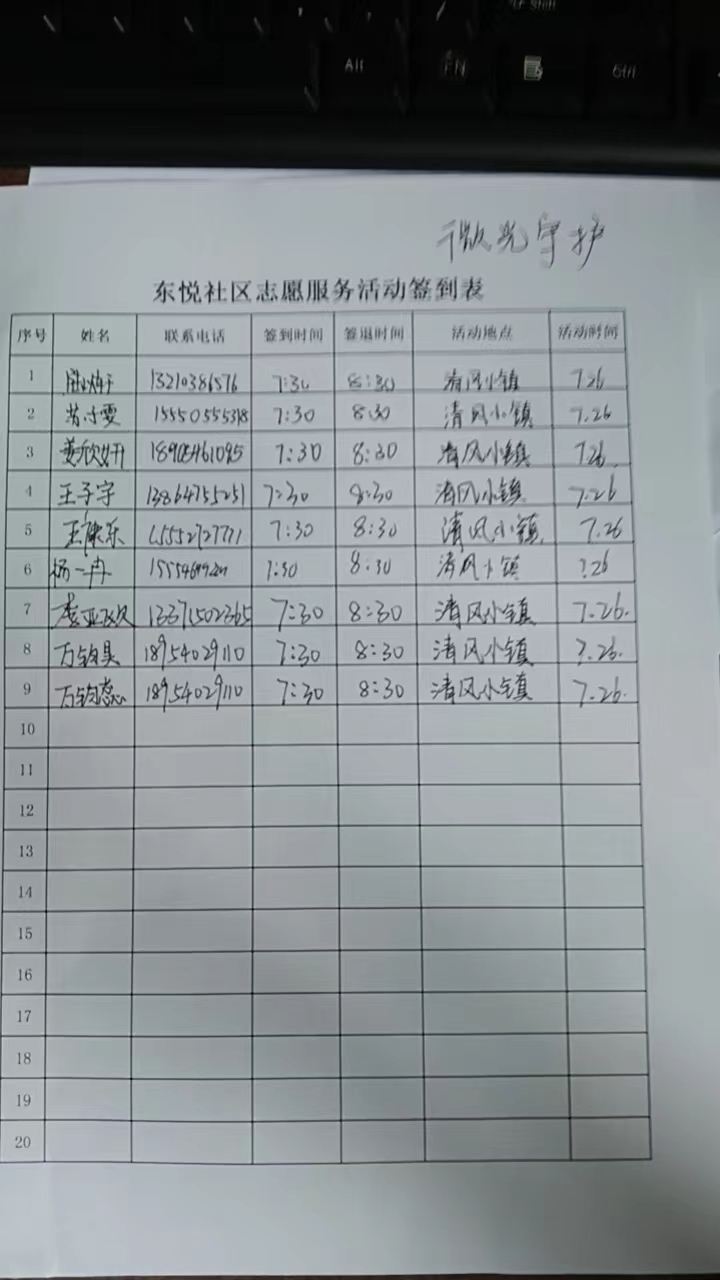 Alt
FN
Ctrl
微光守护
东悦社区志愿服务活动签到表
序号 姓名 联系电话 签到时间 签退时间 活动地点 活动时间
1 13210386576 7:30 8:30 清风小镇 7.26
2 15550555318 7:30 8:30 清风小镇 7.26
3 姜欣妍 7:30 8:30 清风小镇 7.26
4 王子宇 13864755251 7:30 8:30 清风小镇 7.26
5 王康乐 15552727771 7:30 8:30 清风小镇 7.26
6 杨一冉 7:30 8:30 清风小镇 7.26
7 13371502365 7:30 8:30 清风小镇 7.26.
8 万钧昊 18954029110 7:30 8:30 清风小镇 7.26.
9 万钧蕊 18954029110 7:30 8:30 清风小镇 7.26.
10
11
12
13
14
15
16
17
18
19
20